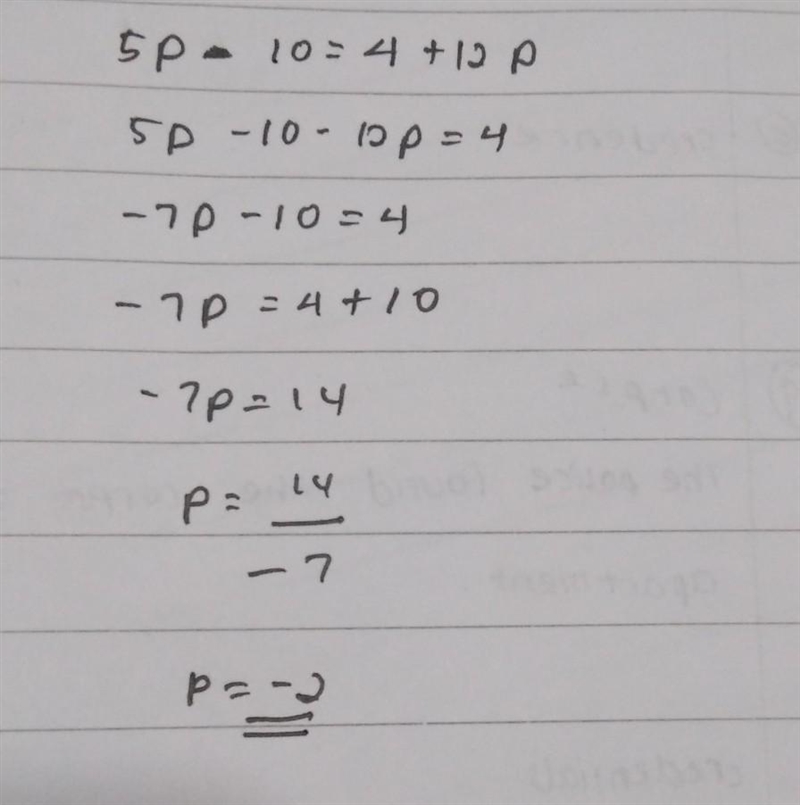 5p - 10 = 4 + 12 p
5p - 10 - 12p = 4
- 7p - 10 = 4
- 7p = 4 + 10
- 7p = 14
p = 14
- 7
p = -2